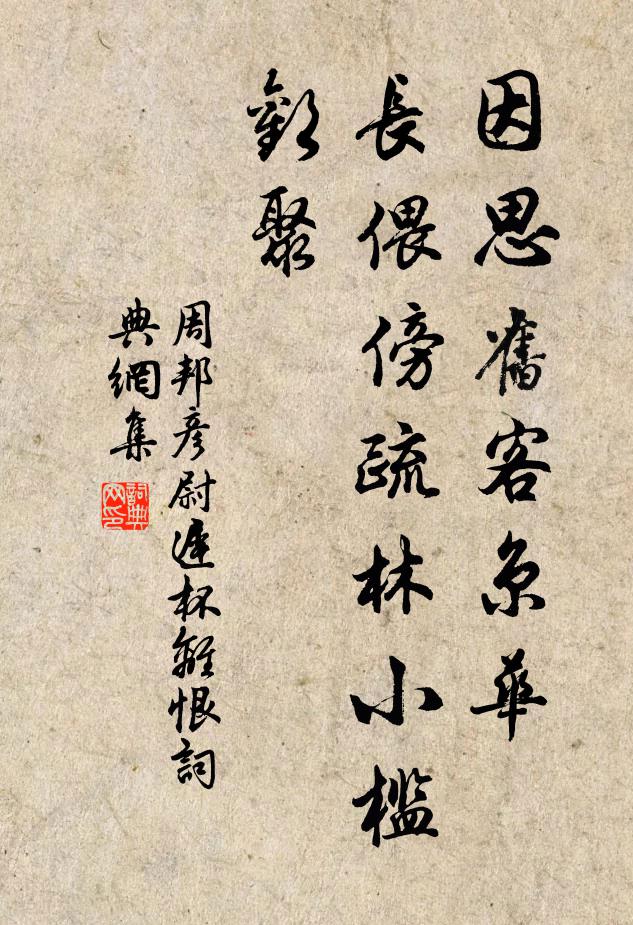 因思舊客京華
長偎傍疏林小檻
歡聚
周邦彥尉遲杯離恨詞
典網集
詞典網印